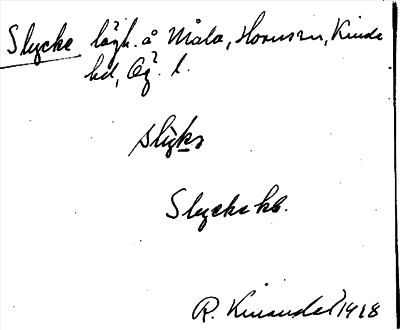 Slycke lägh. å Måla, Hornsn, Kinda
hd, Ög. l.
slyks
Slycke kb.
R. Kinander 1918